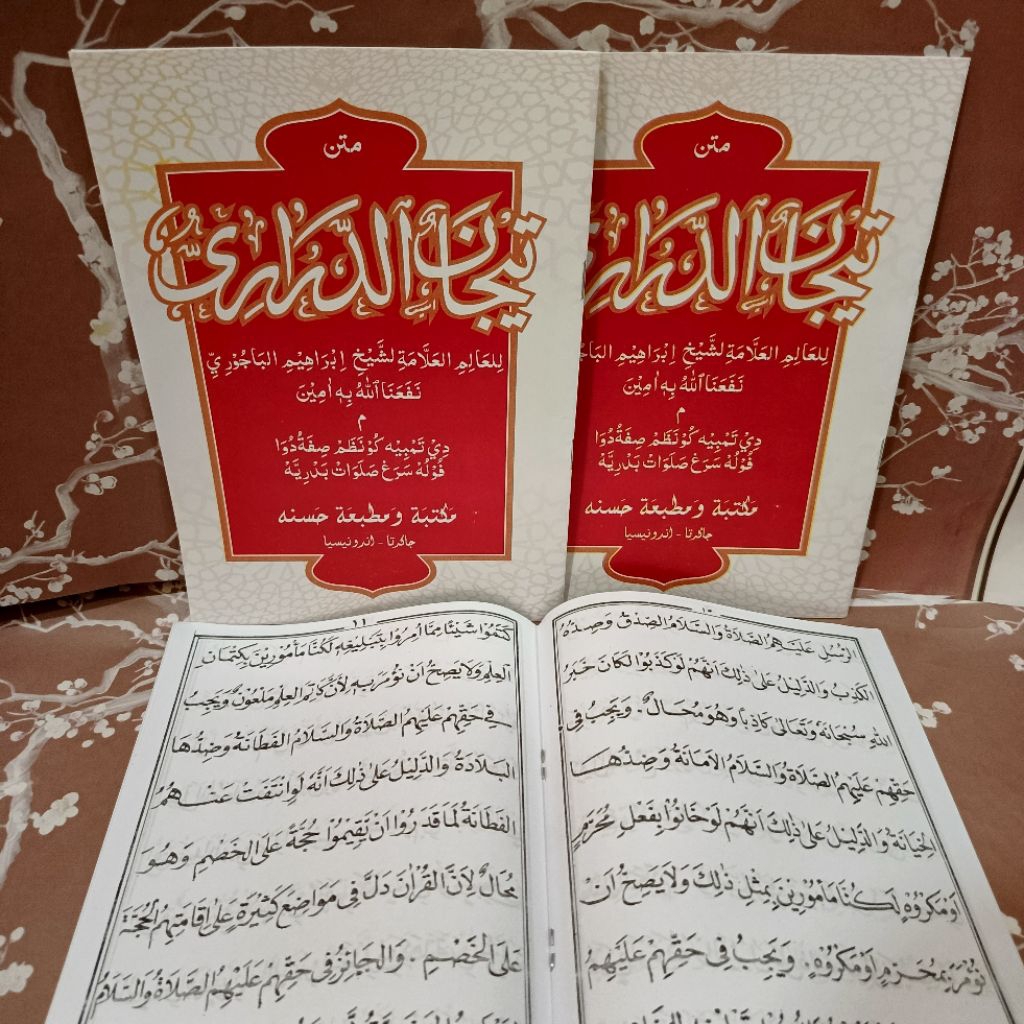 متن
تِيْجَانُ الدَّرَارِيّ
لِلعَالِمِ العَلَّامَةِ لشَّيْخِ اِبْرَاهِيْمِ البَاجُوْرِيِّ
نَفَعَنَا اللّٰهُ بِهِ اٰمِيْنَ
م
دِيْ تَمْبِيْه كَوْ نَظَمْ صِفَةْ دُوَا
فُوْلُهْ سَرَعْ صَلَوَاتْ بَدْرِيَّهْ
مكتبة ومطبعة حسنه
جاكرتا - اندونيسيا
متن
تِيْجَانُ الدَّرَارِ
لِلعَالِمِ العَلَّامَةِ لشَّيْخِ اِبْرَاهِيْمِ
نَفَعَنَا اللّٰهُ بِهِ اٰمِيْنَ
م
دِيْ تَمْبِيْه كَوْ نَظَمْ صِفَةْ دُوَا
فُوْلُهْ سَرَعْ صَلَوَاتْ بَدْرِيَّهْ
مكتبة ومطبعة حسنه
جاكرتا - اندونيسيا
١٠
الرُّسُلِ عَلَيْهِمُ الصَّلَاةُ وَالسَّلَامُ الصِّدْقُ وَضِدُّهُ
الكَذِبُ وَالدَّلِيْلُ عَلَى ذٰلِكَ اَنَّهُمْ لَوْ كَذَبُوْا لَكَانَ خَبَرُ
اللّٰهِ سُبْحَانَهُ وَتَعَالَى كَاذِبًا وَهُوَ مُحَالٌ. وَيَجِبُ فِي
حَقِّهِمْ عَلَيْهِمُ الصَّلَاةُ وَالسَّلَامُ الاَمَانَةُ وَضِدُّهَا
الخِيَانَةُ وَالدَّلِيْلُ عَلَى ذٰلِكَ اَنَّهُمْ لَوْ خَانُوْا بِفِعْلِ مُحَرَّمٍ
اَوْ مَكْرُوْهٍ لَكُنَّا مَأْمُوْرِيْنَ بِمِثْلِ ذٰلِكَ وَلَا يَصِحُّ اَنْ
نُؤْمَرَ بِمُحَرَّمٍ اَوْ مَكْرُوْهٍ. وَيَجِبُ فِي حَقِّهِمْ عَلَيْهِمُ
١١
كَتَمُوْا شَيْئًا مِمَّا اُمِرُوْا بِتَبْلِيْغِهِ لَكُنَّا مَأْمُوْرِيْنَ بِكِتْمَانِ
العِلْمِ وَلَا يَصِحُّ اَنْ نُؤْمَرَ بِهِ لِاَنَّ كَاتِمَ العِلْمِ مَلْعُوْنٌ وَيَجِبُ
فِي حَقِّهِمْ عَلَيْهِمُ الصَّلَاةُ وَالسَّلَامُ الفَطَانَةُ وَضِدُّهَا
البَلَادَةُ وَالدَّلِيْلُ عَلَى ذٰلِكَ اَنَّهُ لَوِ انْتَفَتْ عَنْهُمُ
الفَطَانَةُ لَمَا قَدَرُوْا اَنْ يُقِيْمُوْا حُجَّةً عَلَى الخَصْمِ وَهُوَ
مُحَالٌ لِاَنَّ القُرْاٰنَ دَلَّ فِي مَوَاضِعَ كَثِيْرَةٍ عَلَى اِقَامَتِهِمُ الحُجَّةَ
عَلَى الخَصْمِ. وَالجَائِزُ فِي حَقِّهِمْ عَلَيْهِمُ الصَّلَاةُ وَالسَّلَامُ